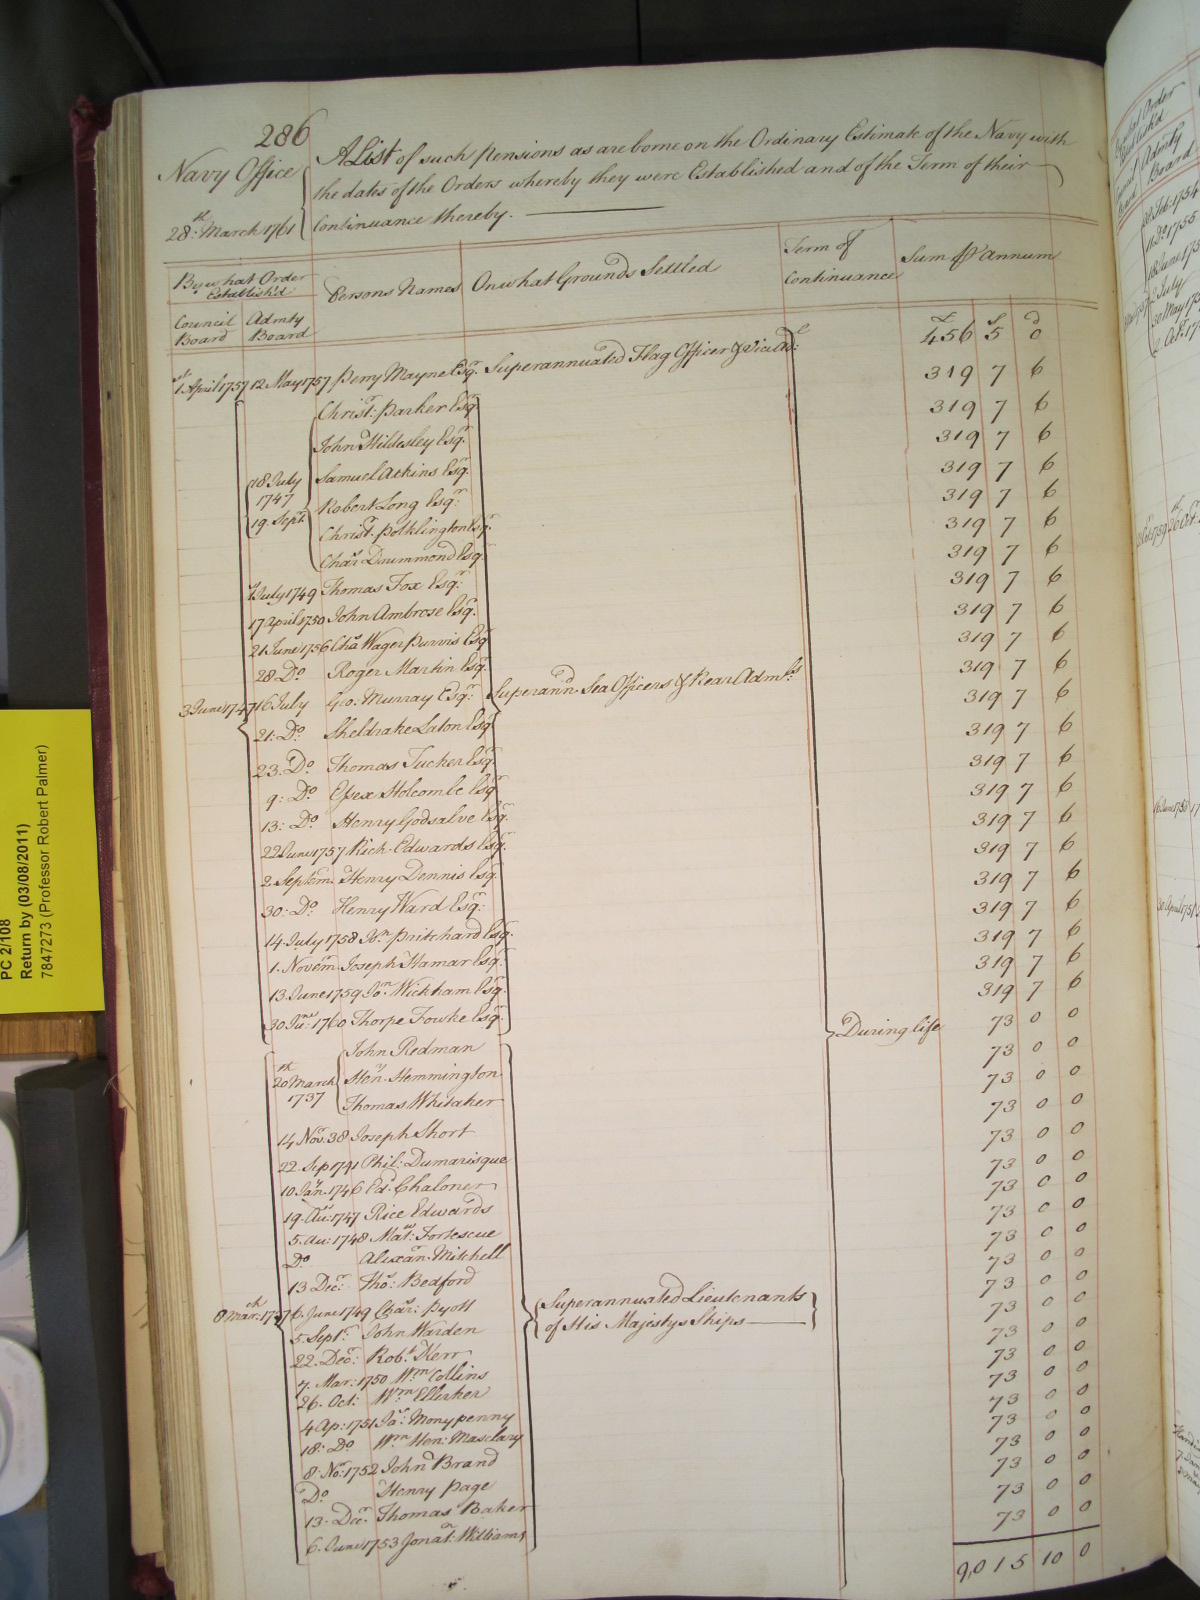 286
Navy Office
28.th March 1761
A List of such Pensions as are borne on the Ordinary Estimate of the Navy with
the dates of the Orders whereby they were Established and of the Term of their
Continuance thereby.
By what Order Establish'd Persons Names On what Grounds Settled Term of Continuance Sum P Annum
Council Board Admty Board
£ s d
1st April 1757 12 May 1757 Perry Mayne Esqr. Superannuated Flag Officer & Vice Adl: 456 5 0
Christr: Parker Esqr 319 7 6
John Hildesley Esqr. 319 7 6
18 July Samuel Atkins Esqr. 319 7 6
1747 Robert Long Esqr: 319 7 6
19. Septr. Christr. Pocklington Esqr. 319 7 6
Chas. Drummond Esqr 319 7 6
1 July 1749 Thomas Fox Esqr: 319 7 6
17 April 1750 John Ambrose Esqr. 319 7 6
21 June 1756 Chas Wager Purvis Esqr 319 7 6
28. Do Roger Martin Esqr. 319 7 6
3 June 1747 16 July Geo. Murray Esqr: Superann'd Sea Officers & Rear Admls. 319 7 6
21: Do. Sheldrake Laton Esqr 319 7 6
23. Do. Thomas Tucker Esqr. 319 7 6
9: Do. Essex Holcombe Esqr 319 7 6
13: Do. Henry Godsalve Esqr. 319 7 6
22 June 1757 Rich. Edwards Esqr. 319 7 6
2 Septem. Henry Dennis Esqr. 319 7 6
30: Do. Henry Ward Esqr: 319 7 6
14 July 1758 Jon. Pritchard Esqr. 319 7 6
1. Novem. Joseph Hamar Esqr. 319 7 6
13 June 1759 Jon. Wickham Esqr. 319 7 6
30 June 1760 Thorpe Fowke Esqr. 319 7 6
During life
John Redman 73 0 0
20th March Hen. Hemmington 73 0 0
1737 Thomas Whitaker 73 0 0
14 Novr. 38 Joseph Short 73 0 0
22 Sep 1741 Phil: Dumarisque 73 0 0
10 Jan. 1746 Ed. Chaloner 73 0 0
19. Au: 1747 Rice Edwards 73 0 0
5. Au: 1748 Matw: Fortescue 73 0 0
Do Alexanr. Mitchell 73 0 0
13 Decr. Thos: Bedford 73 0 0
6. June 1749 Chars: Pyott Superannuated Lieutenants 73 0 0
5. Septr. John Warden of His Majestys Ships 73 0 0
22. Decr: Robt. Kerr 73 0 0
7. Mar: 1750 Wm Collins 73 0 0
26. Oct: Wm. Ellerker 73 0 0
4 Ap: 1751 Jas: Monypenny 73 0 0
18: Do Wm Hen: Masclary 73 0 0
8 No: 1752 John Brand 73 0 0
Do. Henry Page 73 0 0
13. Decr. Thomas Baker 73 0 0
6. June 1753 Jonan. Williams 73 0 0
9,015 10 0
PC 2/108
Return by (03/08/2011)
7847273 (Professor Robert Palmer)